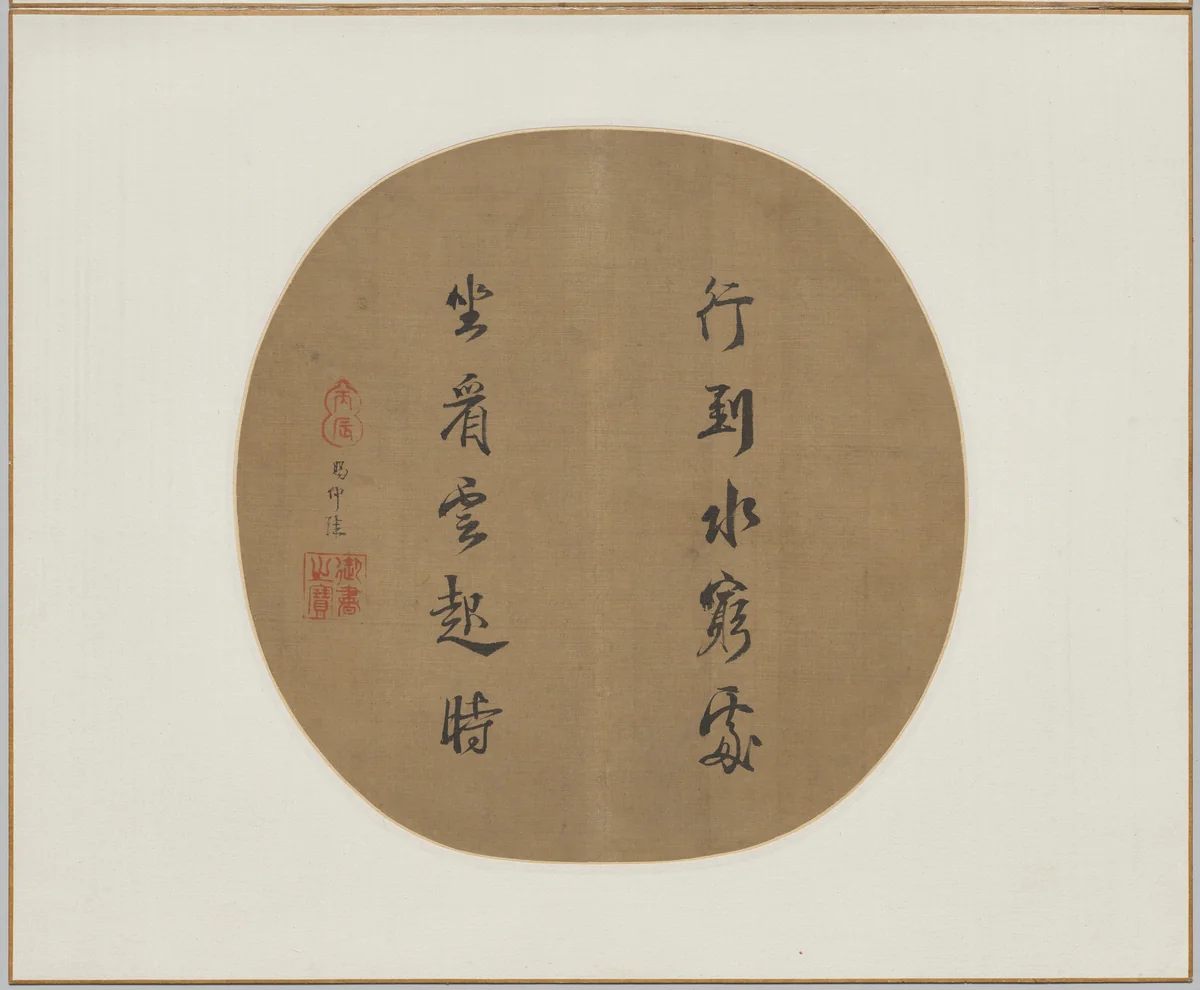 行到水窮處
坐看雲起時
丙辰
賜仲珪
御書之寶